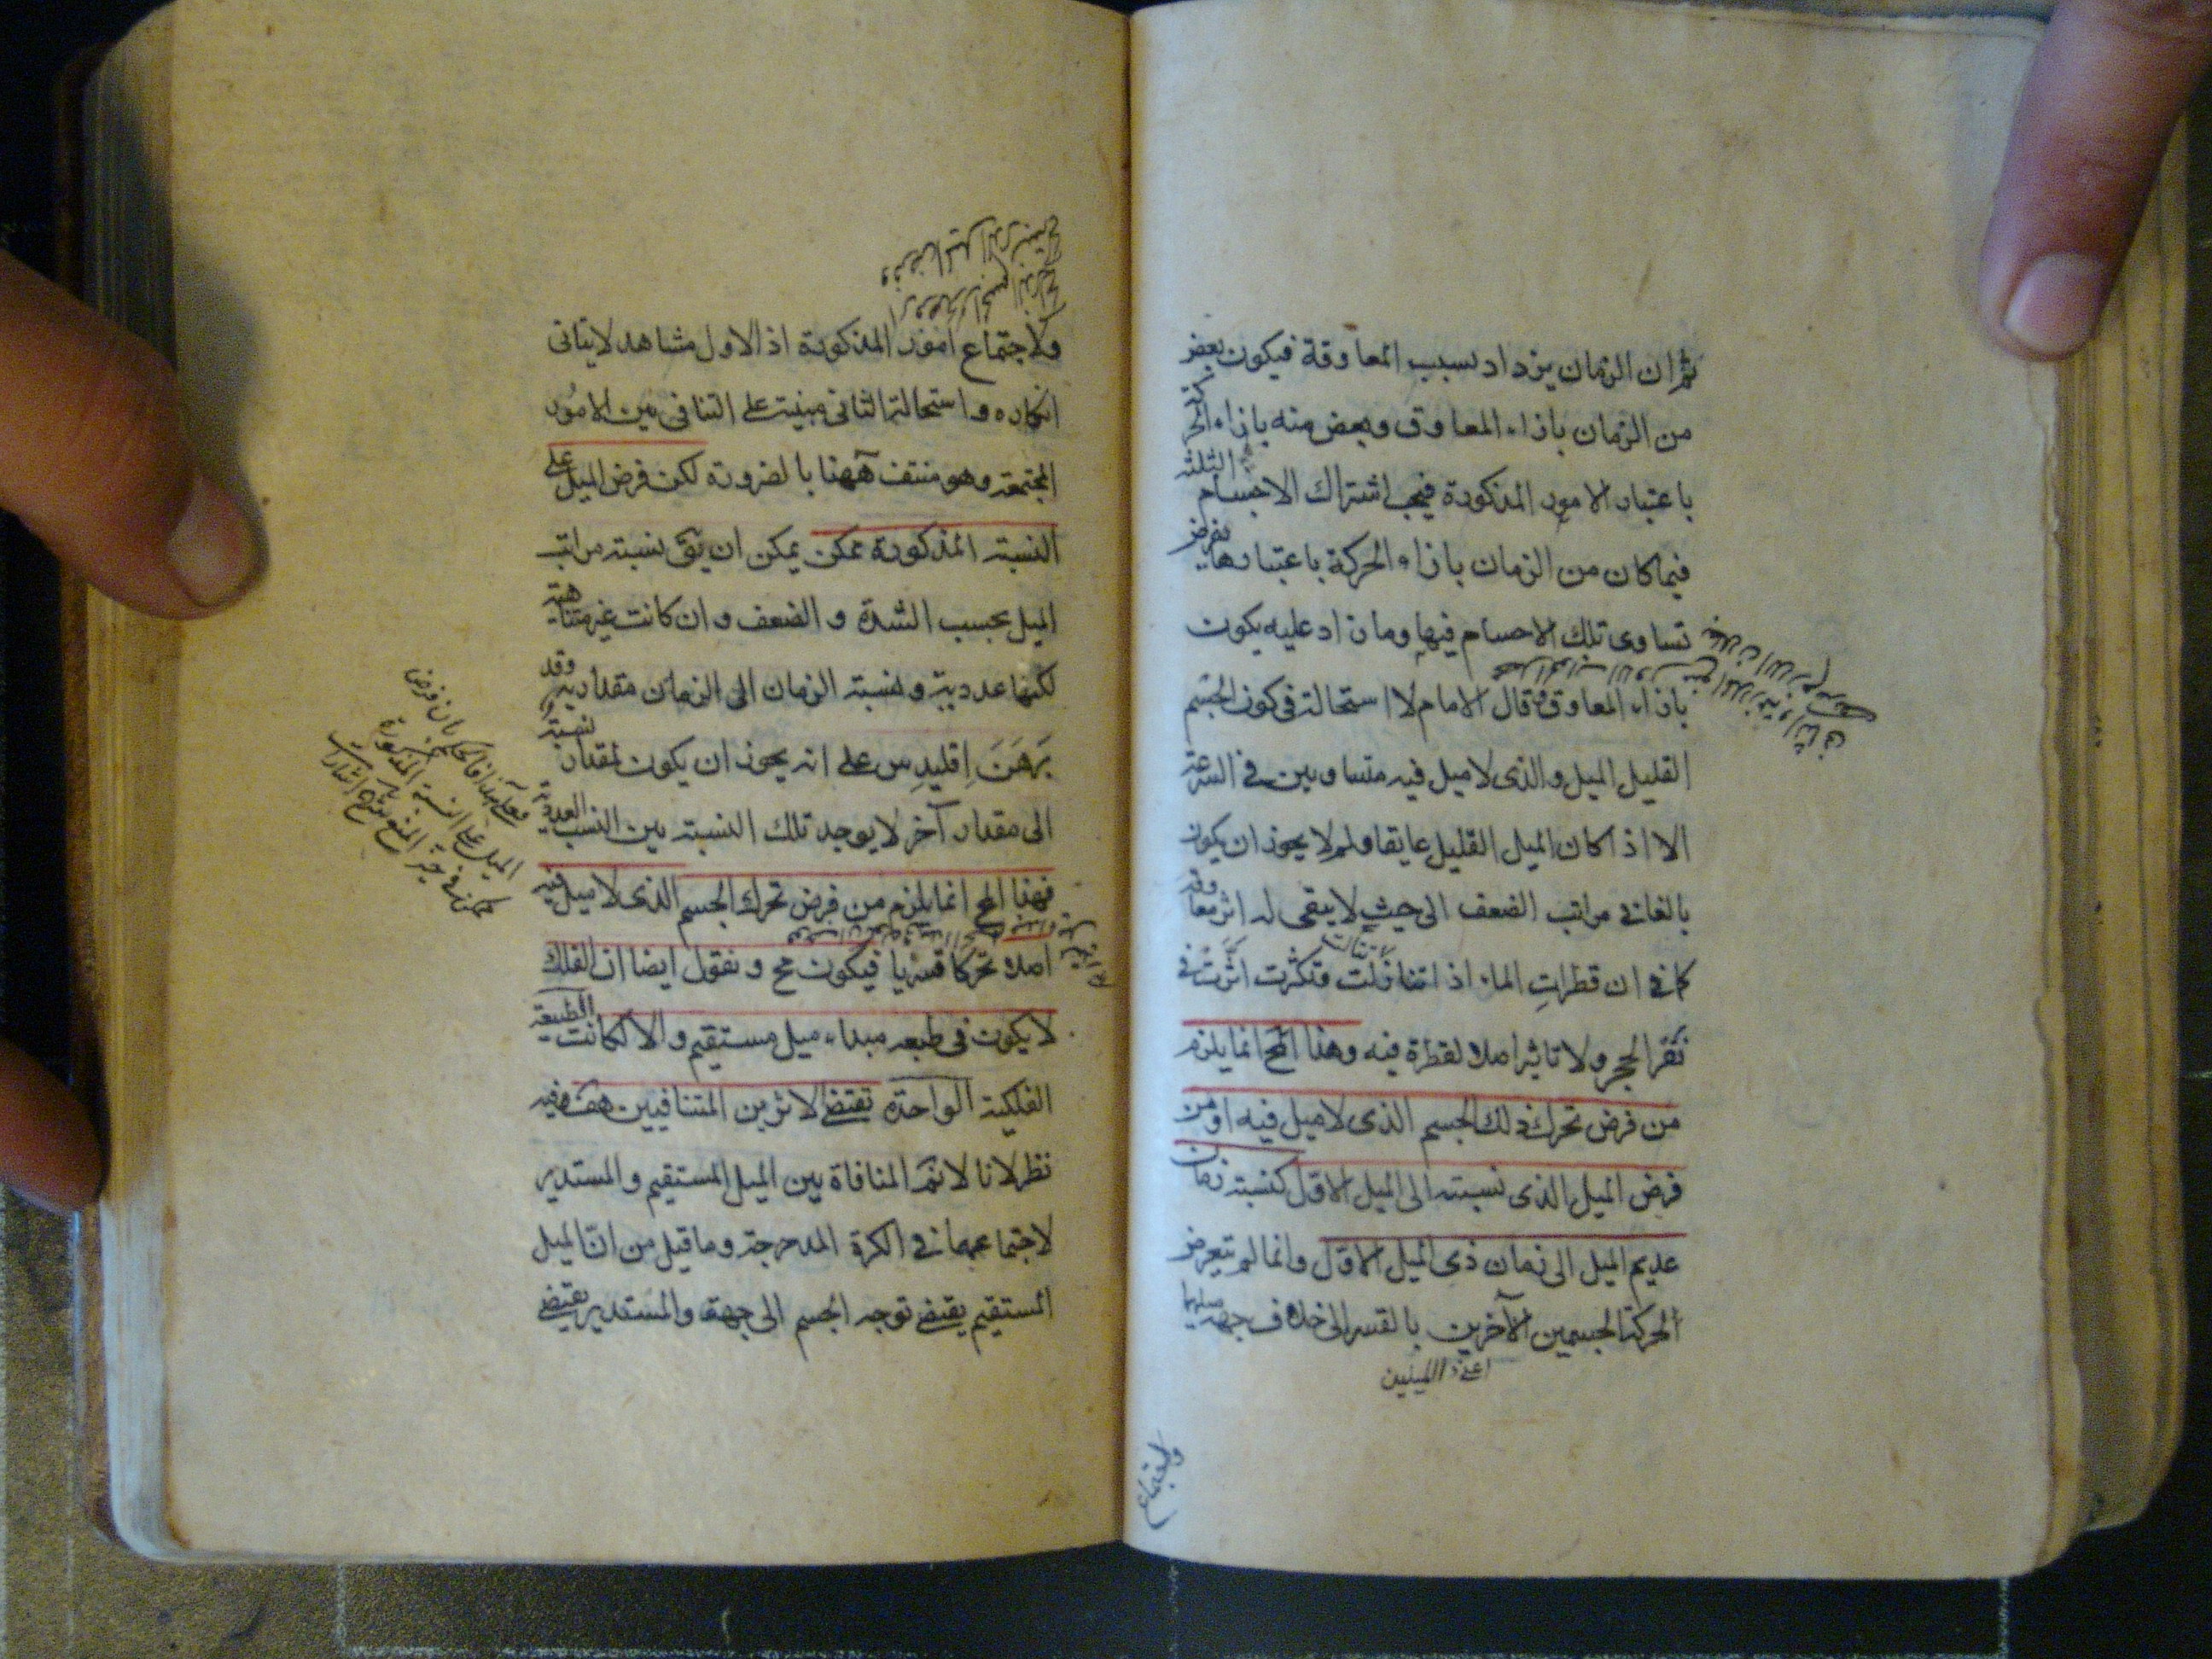 ثم ان الزمان يزداد بسبب المعاوقة فيكون بعض
من الزمان بازاء المعاوق وبعض منه بازاء الحركة
باعتبار الامور المذكورة فيجب اشتراك الاجسام الثلثة
فيما كان من الزمان بازاء الحركة باعتبارها بفرض
تساوى تلك الاجسام فيها وما زاد عليه يكون
بازاء المعاوق قال الامام لا استحالة فى كون الجسم
القليل الميل والذى لا ميل فيه متساويين فى السرعة
الا اذا كان الميل القليل عايقا ولم لا يجوز ان يكون
بالغا فى مراتب الضعف الى حيث لا يبقى له اثر معاوقة
كما فى ان قطرات الماء اذا تنازلت وتكثرت اثرت فى
نقر الحجر ولا تاثير اصلا لقطرة فيه وهذا المح انما يلزم
من فرض تحرك ذلك الجسم الذى لا ميل فيه او من
فرض الميل الذى نسبته الى الميل الاول كنسبة زمان
عديم الميل الى زمان ذى الميل الاول وانما لم يتعرض
الحركة الجسمين الآخرين بالقسر الى خلاف جهة ميليهما
اعنى الميلين
ولاجتماع امور المذكورة اذ الاول مشاهد لا يتاتى
انكاره واستحالة الثانى مبنية على التنافى بين الامور
المجتمعة وهو منتف ههنا بالضرورة لكن فرض الميل على
النسبة المذكورة ممكن يمكن ان يق نسبة مراتب
الميل بحسب الشدة و الضعف وان كانت غير متناهية
لكنها عددية ونسبة الزمان الى الزمان مقدارية وقد
بَرهَنَ اِقليدِس على انه يجوز ان يكون لمقدار نسبة
الى مقدار آخر لا يوجد تلك النسبة بين النسب العددية
فهذا المح انما يلزم من فرض تحرك الجسم الذى لا ميل فيه
اصلا تحركا قسريا فيكون مح و نقول ايضا ان الفلك
لا يكون فى طبعه مبداء ميل مستقيم والا لكانت الطبيعة
الفلكية الواحدة تقتضى لاثرين المتنافيين هف وفيه
نظر لانا لا نم المنافاة بين الميل المستقيم والمستدير
لاجتماعهما فى الكرة المدحرجة وما قيل من ان الميل
المستقيم يقتضى توجه الجسم الى جهة والمستدير يقتضى